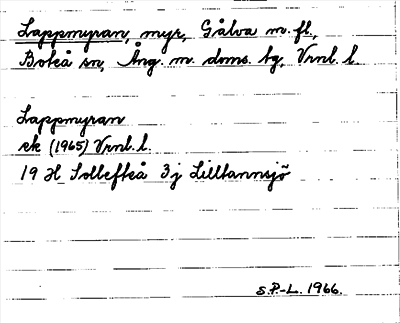 Lappmyran, myr, Gålva m. fl.,
Boteå sn, Ång. m. doms. tg, Vrnl. l.
Lappmyran
ek (1965) Vrnl. l.
19 H Sollefteå 3j Lilltannsjö
S.P.-L. 1966.